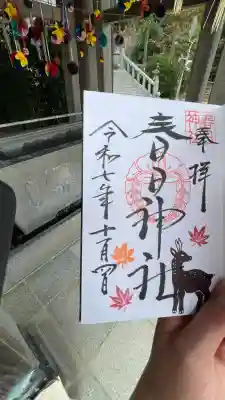 奉拝
春日神社
令和七年十一月四日